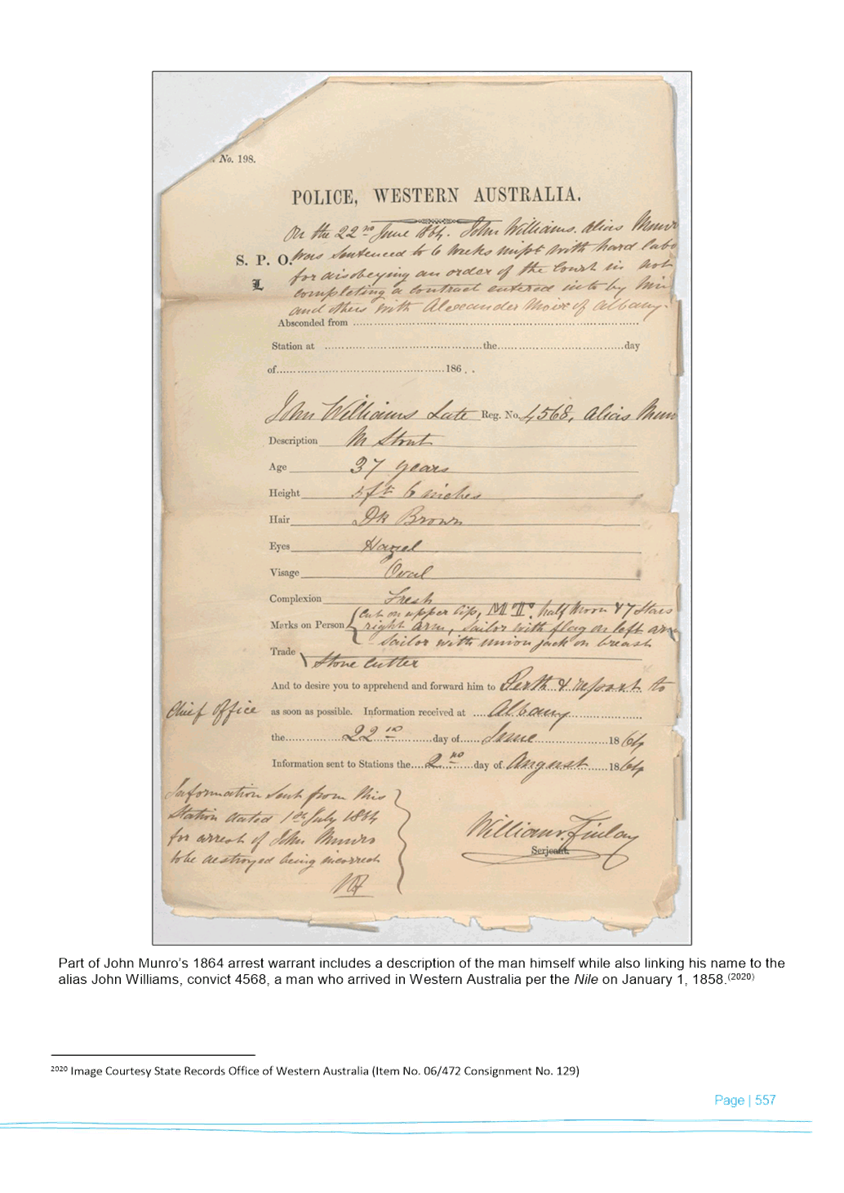 No. 198.
POLICE, WESTERN AUSTRALIA.
On the 22nd June 1864. John Williams. alias Munr
S. P. O. was sentenced to 6 weeks mispt with hard labo
L for disobeying an order of the Court in not
completing a contract entered into by him
and others with Alexander Moir of Albany.
Absconded from
Station at the day
of 186 . .
John Williams Late Reg. No. 4568, alias Mun
Description M Stout
Age 37 years
Height 5ft 6 inches
Hair Dk Brown
Eyes Hazel
Visage Oval
Complexion Fresh
Marks on Person Cut on upper lip, M T, half Moon & 7 Stars
right arm, Sailor with flag on left arm
Sailor with union jack on breast
Trade Stone Cutter
And to desire you to apprehend and forward him to Perth & report to
Chief Office as soon as possible. Information received at Albany
the 22nd day of June 1864
Information sent to Stations the 2nd day of August 1864
Information sent from this
Station dated 1st July 1864
for arrest of John Munro
to be destroyed being incorrect
WF
William Finlay
Serjeant.
Part of John Munro’s 1864 arrest warrant includes a description of the man himself while also linking his name to the
alias John Williams, convict 4568, a man who arrived in Western Australia per the Nile on January 1, 1858.(2020)
2020 Image Courtesy State Records Office of Western Australia (Item No. 06/472 Consignment No. 129)
Page | 557